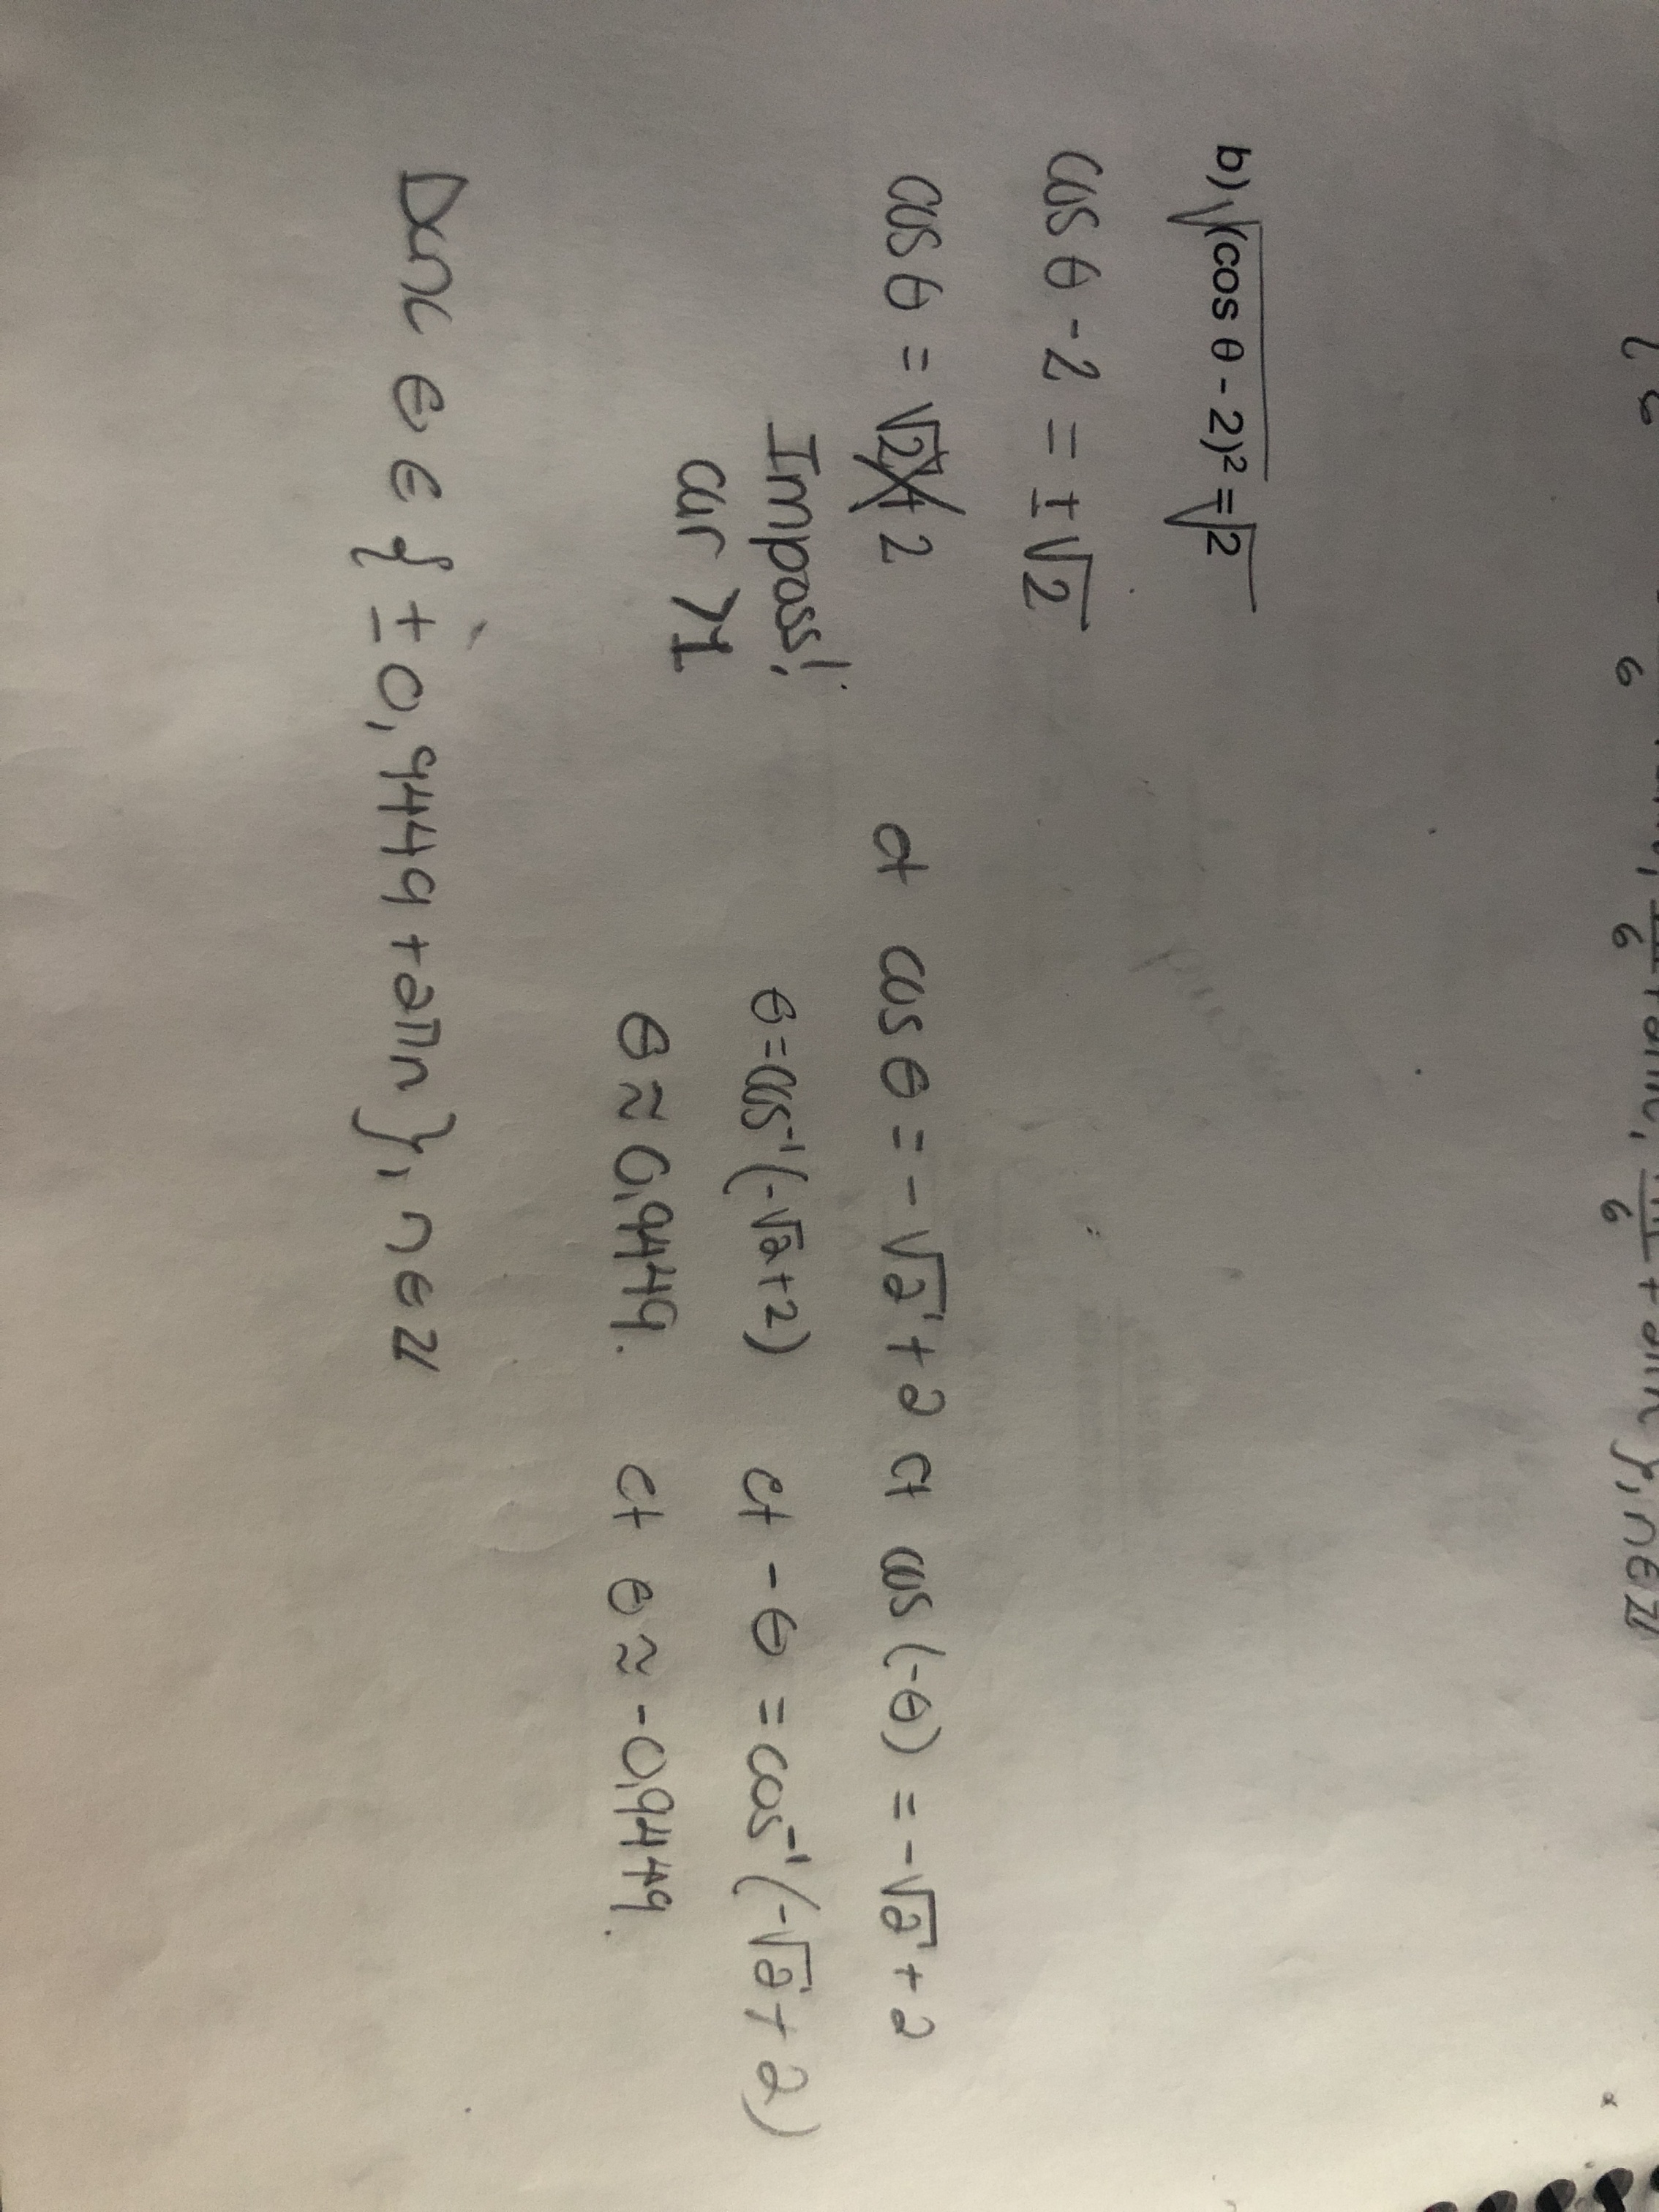 b) √(cos θ - 2)² = √2
cos θ - 2 = ± √2
cos θ = √2 + 2 et cos θ = -√2 + 2 et cos (-θ) = -√2 + 2
Imposs! θ = cos⁻¹(-√2 + 2) et -θ = cos⁻¹(-√2 + 2)
car >1 θ ≈ 0,9449. et θ ≈ -0,9449.
Donc θ ∈ { ± 0,9449 + 2πn }, n ∈ ℤ